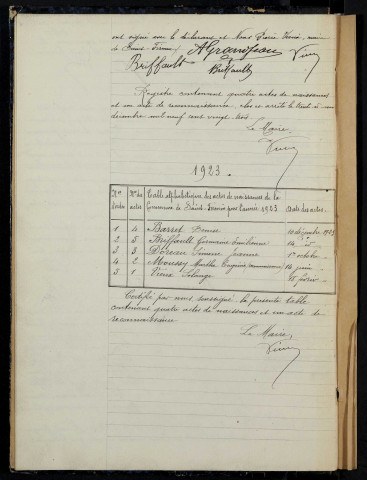 ont signé avec le déclarant et Nous Pierre Vieux, maire
de Saint-Firmin /.
Briffault AGrandjean Vieux
Briffault
Registre contenant quatre actes de naissances
et un acte de reconnaissance, clos et arrêté le trente et un
décembre mil neuf cent vingt trois.
Le Maire,
Vieux
1923.
Nos d'ordre Nos des actes Table alphabétique des actes de naissances de la Commune de Saint-Firmin pour l'année 1923 Date des actes.
1 4 Barret Denise 10 décembre 1923
2 5 Briffault Germaine Emilienne 14 do
3 3 Doreau Simone Jeanne 1er octobre
4 2 Moussy Marthe Eugénie 14 juin
5 1 Vieux Solange 15 février
Certifié par nous soussigné la présente table
contenant quatre actes de naissances et un acte de
reconnaissance
Le Maire,
Vieux